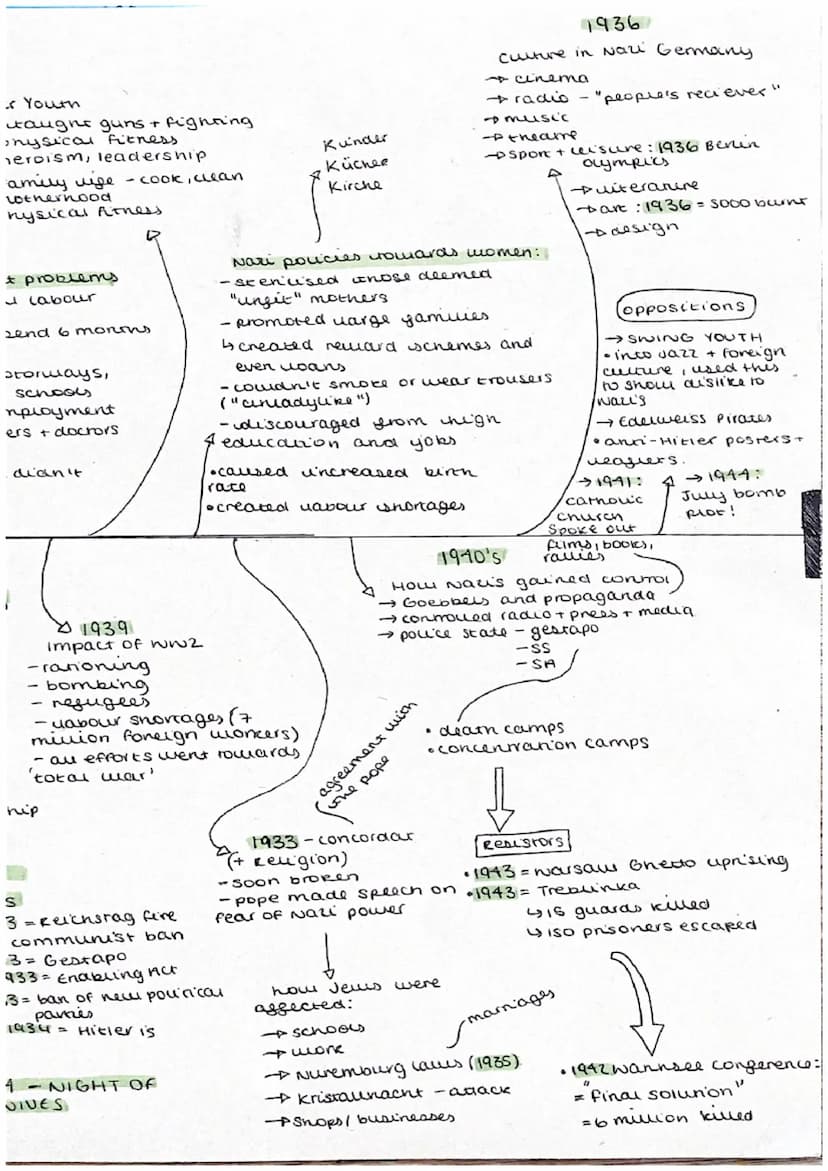 1936
Culture in Nazi Germany
→ cinema
→ radio - "people's reciever"
→ music
→ theatre
→ sport + leisure : 1936 Berlin
Olympics
→ literature
→ art : 1936 = 5000 burnt
→ design
r Youth
taught guns + fighting
physical fitness
heroism, leadership
family life - cook, clean
motherhood
physical fitness
Kinder
Küche
Kirche
Nazi policies towards women:
- sterilised those deemed
"unfit" mothers
- promoted large families
↳ created reward schemes and
even loans
- couldn't smoke or wear trousers
("unladylike")
- discouraged from high
education and jobs
• caused increased birth
rate
• created labour shortages
t problems
labour
end 6 months
otorways,
schools
mployment
ers + doctors
didn't
oppositions
→ SWING YOUTH
• into Jazz + foreign
culture, used this
to show dislike to
Nazi's
→ Edelweiss Pirates
• anti-Hitler posters +
leaflets.
→ 1941:
Catholic
Church
spoke out
→ 1944:
July bomb
plot!
films, books,
rallies
1940's
How Nazi's gained control
→ Goebbels and propaganda
→ controlled radio + press + media
→ police state - gestapo
- SS
- SA
• death camps
• concentration camps
1939
impact of WW2
- rationing
- bombing
- refugees
- labour shortages (7
million foreign workers)
- all efforts went towards
'total war'
hip
agreement with
the pope
1933 - concordat
(+ religion)
- soon broken
- pope made speech on
fear of Nazi power
Resistors
• 1943 = Warsaw Ghetto uprising
• 1943 = Treblinka
↳ 15 guards killed
↳ 150 prisoners escaped
s
3 = Reichstag fire
communist ban
3 = Gestapo
933 = Enabling Act
3 = ban of new political
parties
1934 = Hitler is
4 - NIGHT OF
NIVES
how Jews were
affected:
→ schools
→ work
→ Nuremburg laws (1935)
marriages
→ Kristallnacht - attack
→ Shops / businesses
• 1942 Wannsee conference:
= "final solution"
= 6 million killed